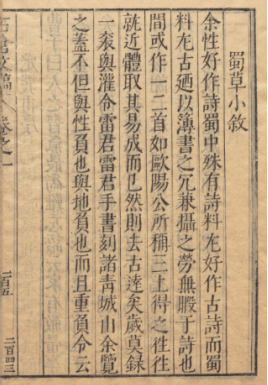 蜀草小敘
余性好作詩蜀中殊有詩料尤好作古詩而蜀
料尤古廼以簿書之冗兼攝之勞無暇于詩也
間或作一二首如歐陽公所稱三上得之徃徃
就近體取其易成而已然則去古逹矣歲莫錄
一袠與灌令雷君雷君手書刻諸青城山余覽
之葢不但與性負也與地負也而且重負令云
卷之一
一百五
二百四三